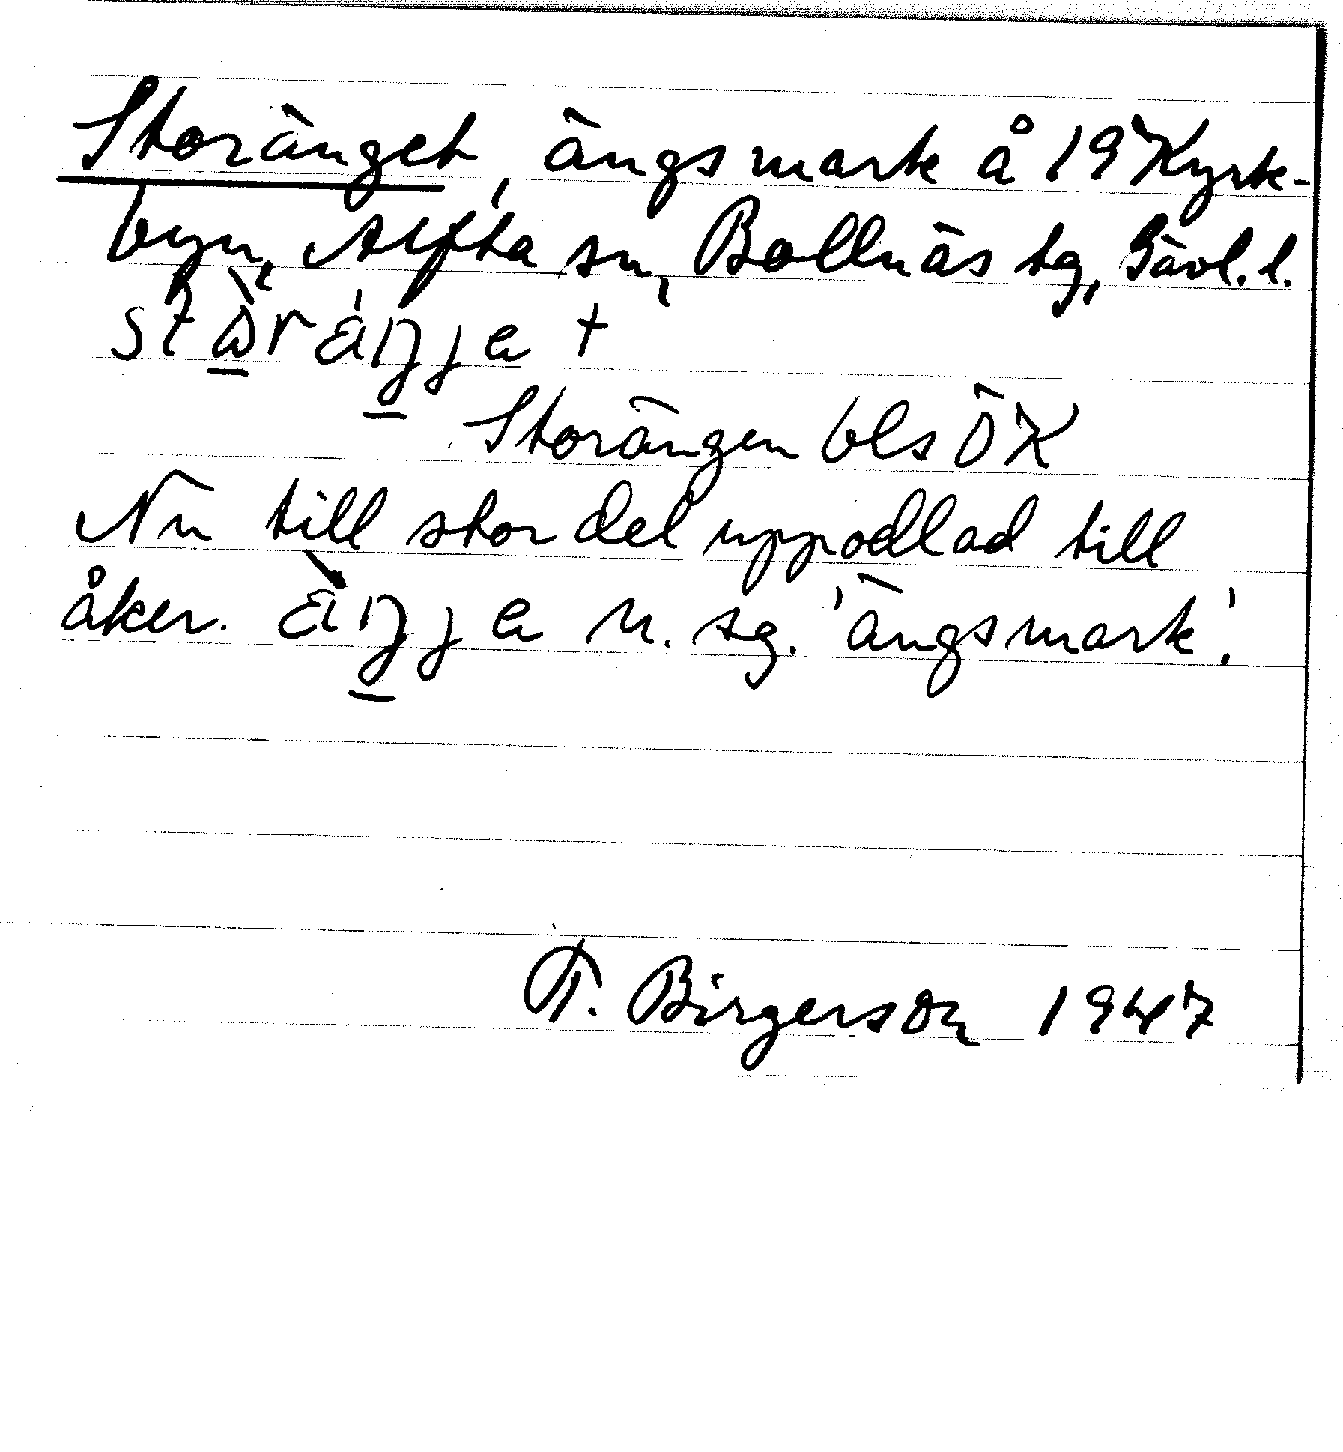 Storänget, ängsmark å 19 Kyrk-
byn, Alfta sn, Bollnäs tg, Gävl. l.
Storängen bls ÖK
Nu till stor del uppodlad till
åker. n. sg. 'ängsmark'.
T. Birgerson 1947